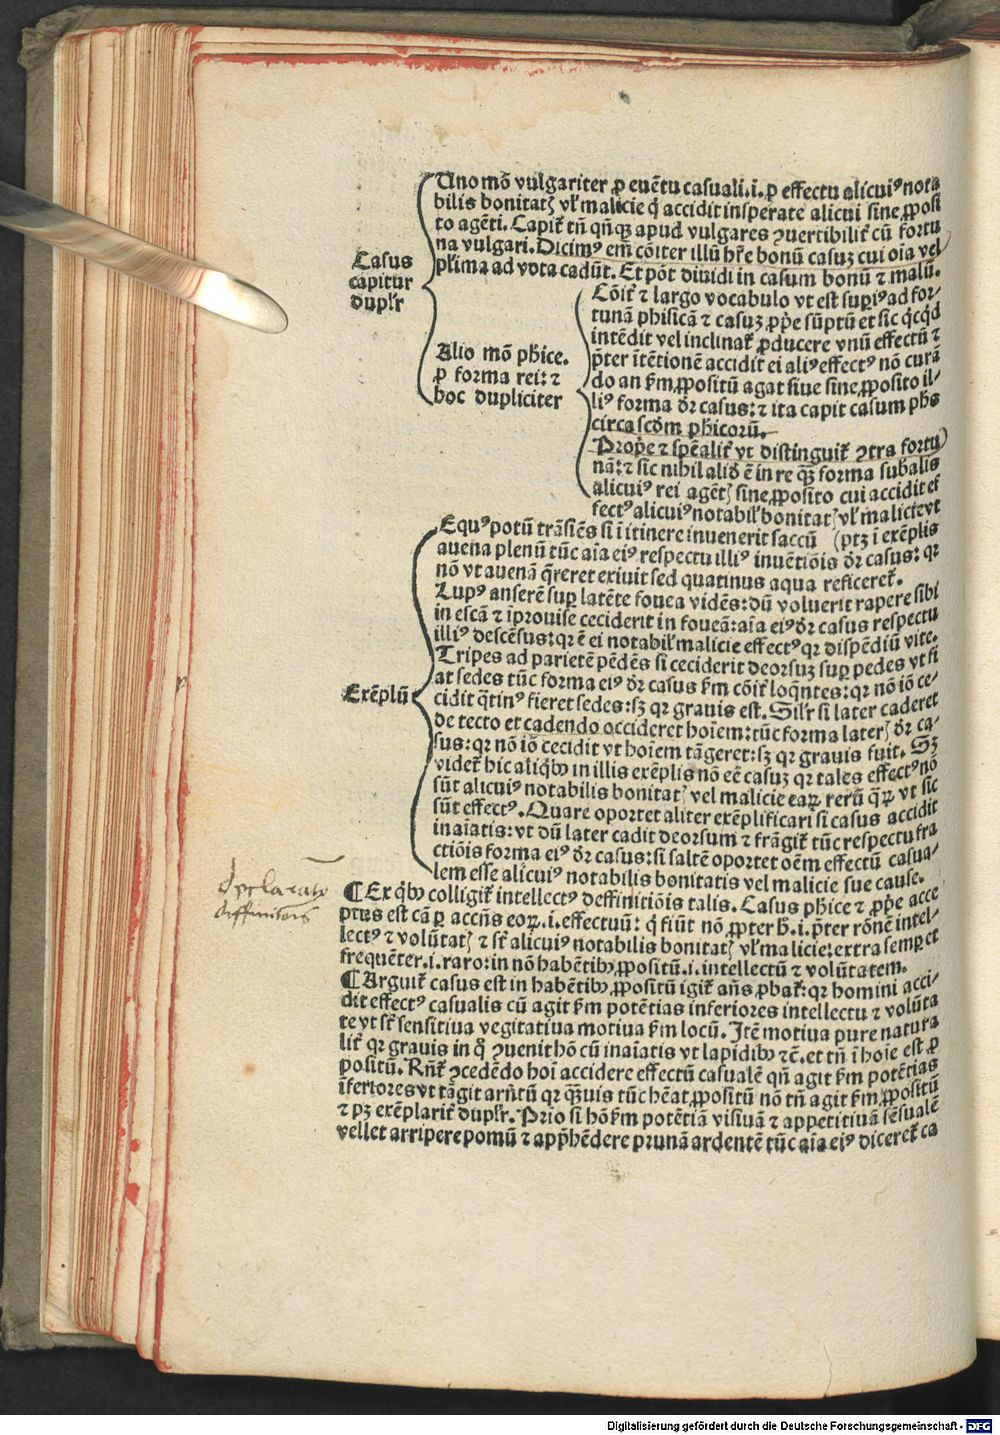 Uno mō vulgariter ꝑ euētu casuali.i.ꝑ effectu alicuiꝰ nota
bilis bonitatꝭ vl̕ malicie q̇ accidit insperate alicui sine ꝓposi
to agēti. Capit̕ tn̄ qn̄qꝫ apud vulgares ꝯuertibilit̕ cū fortu
na vulgari. Dicimꝰ em̄ cōiter illū hr̄e bonū casuꝫ cui oīa vel
pl̕ima ad vota cadūt. Et pōt diuidi in casum bonū ⁊ malū.
Casus
capitur
dupl̕r
Alio mō ph̕ice.
ꝑ forma rei: ⁊
hoc dupliciter
Cōit̕ ⁊ largo vocabulo vt est suꝑiꝰ ad for-
tunā phisicā ⁊ casuꝫ ꝓp̕e sūptū et sic q̇cq̇d
intēdit vel inclinat̕ ꝓducere vnū effectū ⁊
p̄ter ītētionē accidit ei aliꝰ effectꝰ nō curā
do an ẜm ꝓpositū agat siue sine ꝓposito il-
liꝰ forma dr̄ casus: ⁊ ita capit casum ph̕s
circa scd̄m ph̕icorū.
Prop̕e ⁊ sp̄ealit̕ vt distinguit̕ ꝯtra fortu
nā: ⁊ sic nihil aliđ ē in re qꝫ̄ forma sub̕alis
alicuiꝰ rei agētꝭ sine ꝓposito cui accidit ef
fectꝰ alicuiꝰ notabil̕ bonitatꝭ vl̕ malicie vt
(ptꝫ ī exēplis
Equꝰ potū trāsiēs si ī itinere inuenerit saccū
auena plenū tūc aīa eiꝰ respectu illiꝰ inuētiōis dr̄ casus: qꝛ
nō vt auenā q̄reret exiuit sed quatinus aqua reficeret̕.
Lupꝰ anserē suꝑ latēte fouea vidēs: dū voluerit rapere sibi
in escā ⁊ īprouise ceciderit in foueā: aīa eiꝰ dr̄ casus respectu
illiꝰ descēsus: qꝛ ē ei notabil̕ malicie effectꝰ qꝛ dispēdiū vite.
Tripes ad parietē pēdēs si ceciderit deorsuꝫ suꝑ pedes vt si
at sedes tūc forma eiꝰ dr̄ casus ẜm cōit̕ loq̄ntes: qꝛ nō iō ce-
cidit q̄tinꝰ fieret sedes: sꝫ qꝛ grauis est. Sil̕r si later caderet
de tecto et cadendo occideret hoīem: tūc forma laterꝭ dr̄ ca-
sus: qꝛ nō iō cecidit vt hoīem tāgeret: sꝫ qꝛ grauis fuit. Sꝫ
videt̕ hic aliq̇bꝰ in illis exēplis nō eē casuꝫ qꝛ tales effectꝰ nō
sūt alicuiꝰ notabilis bonitatꝭ vel malicie eaꝝ rerū q̄ꝝ vt sic
sūt effectꝰ. Quare oportet aliter exēplificari si casus accidit
inaīatis: vt dū later cadit deorsum ⁊ frāgit̕ tūc respectu fra
ctiōis forma eiꝰ dr̄ casus: si saltē oportet oēm effectū casua-
lem esse alicuiꝰ notabilis bonitatis vel malicie sue cause.
Exēplū
declaratio
diffinitōis
¶Ex q̇bꝰ colligit̕ intellectꝰ deffinitiōis talis. Casus ph̕ice ⁊ ꝓp̕e acce
ptus est cā ꝑ accn̄s eoꝝ.i.effectuū: q̇ fiūt nō ꝓpter h̕.i.p̄ter rōnē intel-
lectꝰ ⁊ volūtatꝭ ⁊ st̄ alicuiꝰ notabilis bonitatꝭ vl̕ malicie: extra semꝑ et
frequēter.i.raro: in nō habētibꝰ ꝓpositū.i.intellectū ⁊ volūtatem.
¶Arguit̕ casus est in habētibꝰ ꝓpositū igit̕ an̄s ꝓbat̕: qꝛ homini acci-
dit effectꝰ casualis cū agit ẜm potētias inferiores intellectu ⁊ volūta
te vt st̄ sensitiua vegitatiua motiua ẜm locū. Itē motiua pure natura
lit̕ qꝛ grauis in q̊ ꝯuenit hō cū inaīatis vt lapidibꝰ ⁊c̄. et tn̄ ī hoīe est ꝓ
positū. Rn̄t̕ ꝯcedēdo hoī accidere effectū casualē qn̄ agit ẜm potētias
īferiores vt tāgit arn̄tū qꝛ qꝫ̄uis tūc hēat ꝓpositū nō tn̄ agit ẜm ꝓpositū
⁊ pꝫ exēplarit̕ dupl̕r. Prio si hō ẜm potētiā visiuā ⁊ appetitiuā sēsualē
vellet arripere pomū ⁊ app̄hēdere prunā ardentē tūc aīa eiꝰ diceret̕ ca
Digitalisierung gefördert durch die Deutsche Forschungsgemeinschaft - DFG